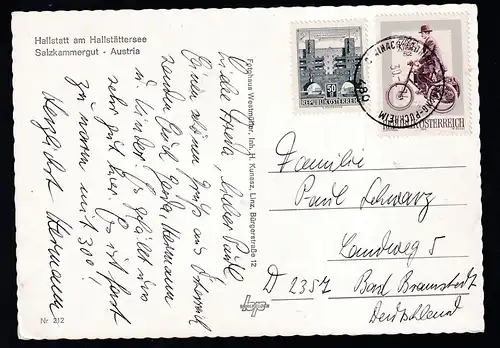 Hallstatt am Hallstättersee
Salzkammergut - Austria
Liebe Herta, lieber Paul!
Einen schönen Gruß aus Österreich
senden Euch Gerda, Hermann
u. Kinder. Es gefällt uns
sehr gut hier. Es ist fast
zu warm mit 30°!
Herzlichst Hermann
Nr. 212
Fotohaus Westmüller, Inh. H. Kunasz, Linz, Bürgerstraße 12
50
REPUBLIK ÖSTERREICH
REPUBLIK ÖSTERREICH
Familie
Paul Schwarz
Landweg 5
D 2357 Bad Bramstedt
Deutschland